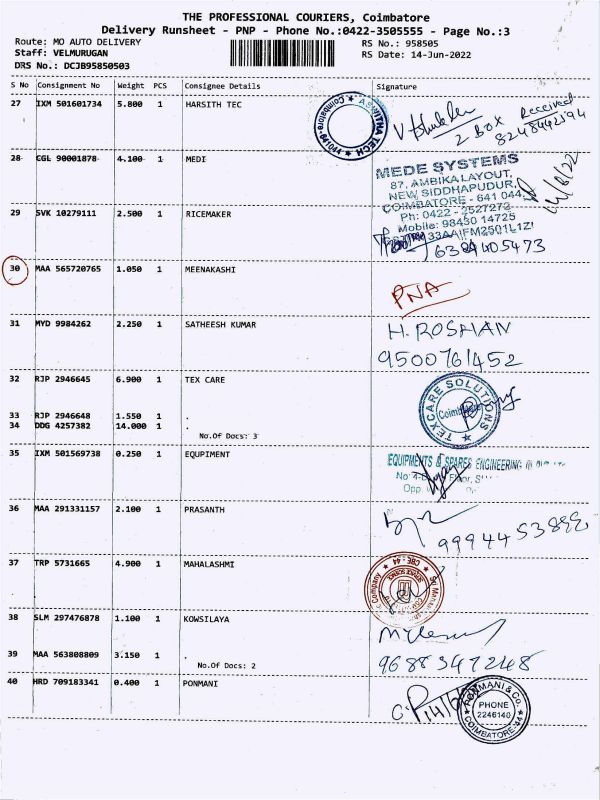 THE PROFESSIONAL COURIERS, Coimbatore
Delivery Runsheet - PNP - Phone No.:0422-3505555 - Page No.:3
Route: MO AUTO DELIVERY RS No.: 958505
Staff: VELMURUGAN RS Date: 14-Jun-2022
DRS No.: DCJB95850503
S No Consignment No Weight PCS Consignee Details Signature
27 IXM 501601734 5.800 1 HARSITH TEC
ASWITHA TECH
Coimbatore-641044
2 BOX Received
8248442594
28 CGL 90001878 4.100 1 MEDI
MEDE SYSTEMS
87, AMBIKA LAYOUT,
NEW SIDDHAPUDUR,
COIMBATORE - 641 044
Ph: 0422 - 2527272
Mobile: 98430 14725
14/6/22
29 SVK 10279111 2.500 1 RICEMAKER
6384405473
30 MAA 565720765 1.050 1 MEENAKASHI
PNA
31 MYD 9984262 2.250 1 SATHEESH KUMAR
H. ROSHAN
9500761452
32 RJP 2946645 6.900 1 TEX CARE
TEXCARE SOLUTIONS
Coimbatore
33 RJP 2946648 1.550 1 .
34 DDG 4257382 14.000 1 .
No.Of Docs: 3
35 IXM 501569738 0.250 1 EQUPIMENT
EQUIPMENTS & SPARES ENGINEERING
Floor,
Opp.
36 MAA 291331157 2.100 1 PRASANTH
37 TRP 5731665 4.900 1 MAHALASHMI
CBE - 44
38 SLM 297476878 1.100 1 KOWSILAYA
39 MAA 563808809 3.150 1 .
No.Of Docs: 2
9688347248
40 HRD 709183341 0.400 1 PONMANI
PONMANI & Co.
PHONE
2246140
COIMBATORE-44